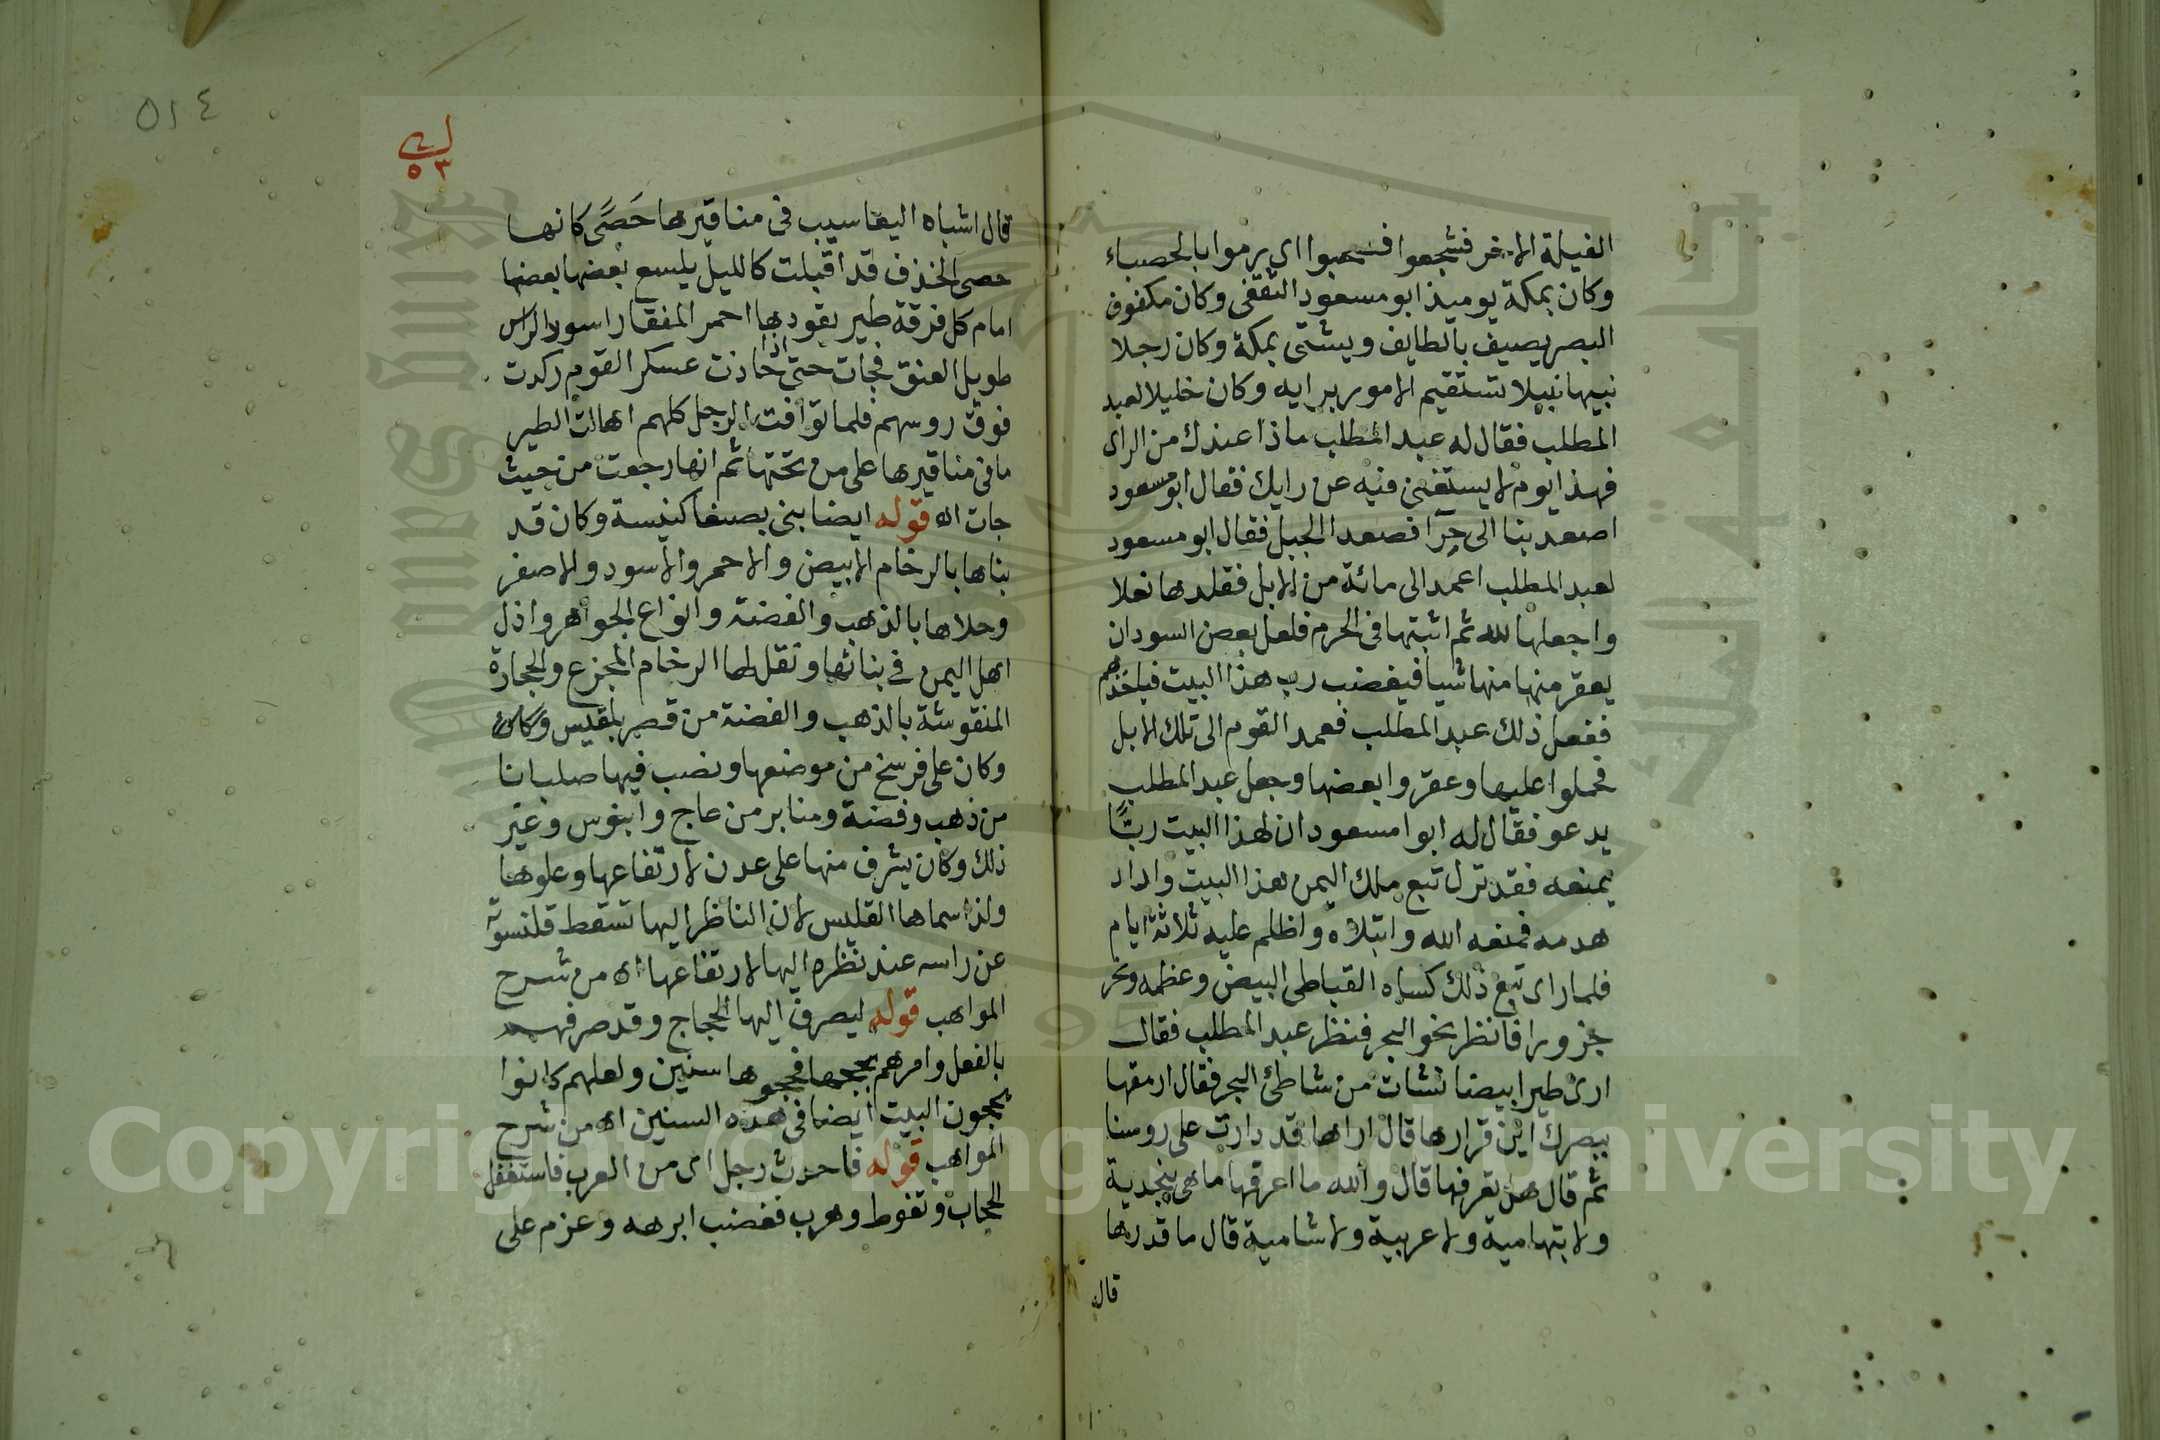 الفيلة الاخر فشجعوا فحصبوا اى رموا بالحصباء
وكان بمكة يوميذ ابو مسعود الثقفى وكان مكفوف
البصر يصيف بالطايف ويشتى بمكة وكان رجلا
نبيها نبيلا تستقيم الامور برايه وكان خليلا لعبد
المطلب فقال له عبد المطلب ماذا عندك من الراى
فهذا يوم لا يستغنى فيه عن رايك فقال ابو مسعود
اصعد بنا الى حرا فصعد الجبل فقال ابو مسعود
لعبد المطلب اعمد الى مائة من الابل فقلدها نعلا
واجعلها لله ثم اثبتها فى الحرم فلعل بعض السودان
يعقر منها منها شيا فيغضب رب هذا البيت فياخذهم
ففعل ذلك عبد المطلب فعمد القوم الى تلك الابل
فحملوا عليها وعقروا بعضها وجعل عبد المطلب
يدعو فقال له ابوا مسعود ان لهذا البيت ربًّا
يمنعه فقد نزل تبع ملك اليمن هذا البيت واراد
هدمه فمنعه الله وابتلاه واظلم عليه ثلاثة ايام
فلما راى تبع ذلك كساه القباطى البيض وعظمه ونحر
جزورا فانظر نحو البحر فنظر عبد المطلب فقال
ارى طيرا بيضا نشات من شاطئ البحر فقال ارمقها
ببصرك اين قرارها قال اراها قد دارت على روسنا
ثم قال هل تعرفها قال والله ما اعرفها ما هى بنجدية
ولا بتهامية ولا عربية ولا شامية قال ما قدرها
قال
٥١٤
٥٣
قال اشباه اليعاسيب فى مناقيرها حَصًى كانها
حصى الخذف قد اقبلت كالليل يلسع بعضها بعضها
امام كل فرقة طير يقودها احمر المنقار اسود الراس
طويل العنق فجات حتى اذا حاذت عسكر القوم ركدت
فوق روسهم فلما توافت الرجل كلهم اهالت الطير
ما فى مناقيرها على من تحتها ثم انها رجعت من حيث
جات اه قوله ايضا بنى بصنعا كنيسة وكان قد
بناها بالرخام الابيض والاحمر والاسود والاصفر
وحلاها بالذهب والفضة وانواع الجواهر واذل
اهل اليمن فى بنائها ونقل لها الرخام المجزع والحجارة
المنقوشة بالذهب والفضة من قصر بلقيس وكان
وكان على فرسخ من موضعها ونصب فيها صلبانا
من ذهب وفضة ومنابر من عاج وابنوس وغير
ذلك وكان يشرف منها على عدن لارتفاعها وعلوها
ولذا سماها القليس لان الناظر اليها تسقط قلنسوته
عن راسه عند نظره اليها لارتفاعها اه من شرح
المواهب قوله ليصرف اليها الحجاج وقد صرفهم
بالفعل وامرهم بحجها فحجوها سنين ولعلهم كانوا
يحجون البيت ايضا فى هذه السنين اه من شرح
المواهب قوله فاحدث رجل اى من العرب فاستغفل
الحجاب وتغوط وهرب فغضب ابرهه وعزم على
Copyright © King Saud University